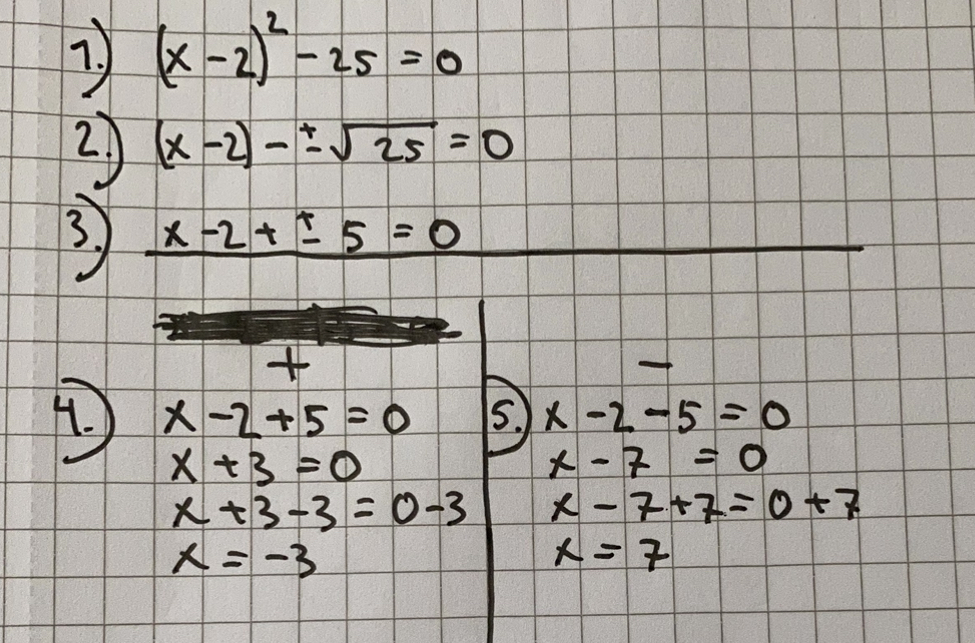 1.) (x-2)² - 25 = 0
2.) (x-2) - ±√25 = 0
3.) x-2 + ± 5 = 0
+
4.) x-2+5 = 0
x+3 = 0
x+3-3 = 0-3
x = -3
-
5.) x-2-5 = 0
x-7 = 0
x-7+7 = 0+7
x = 7